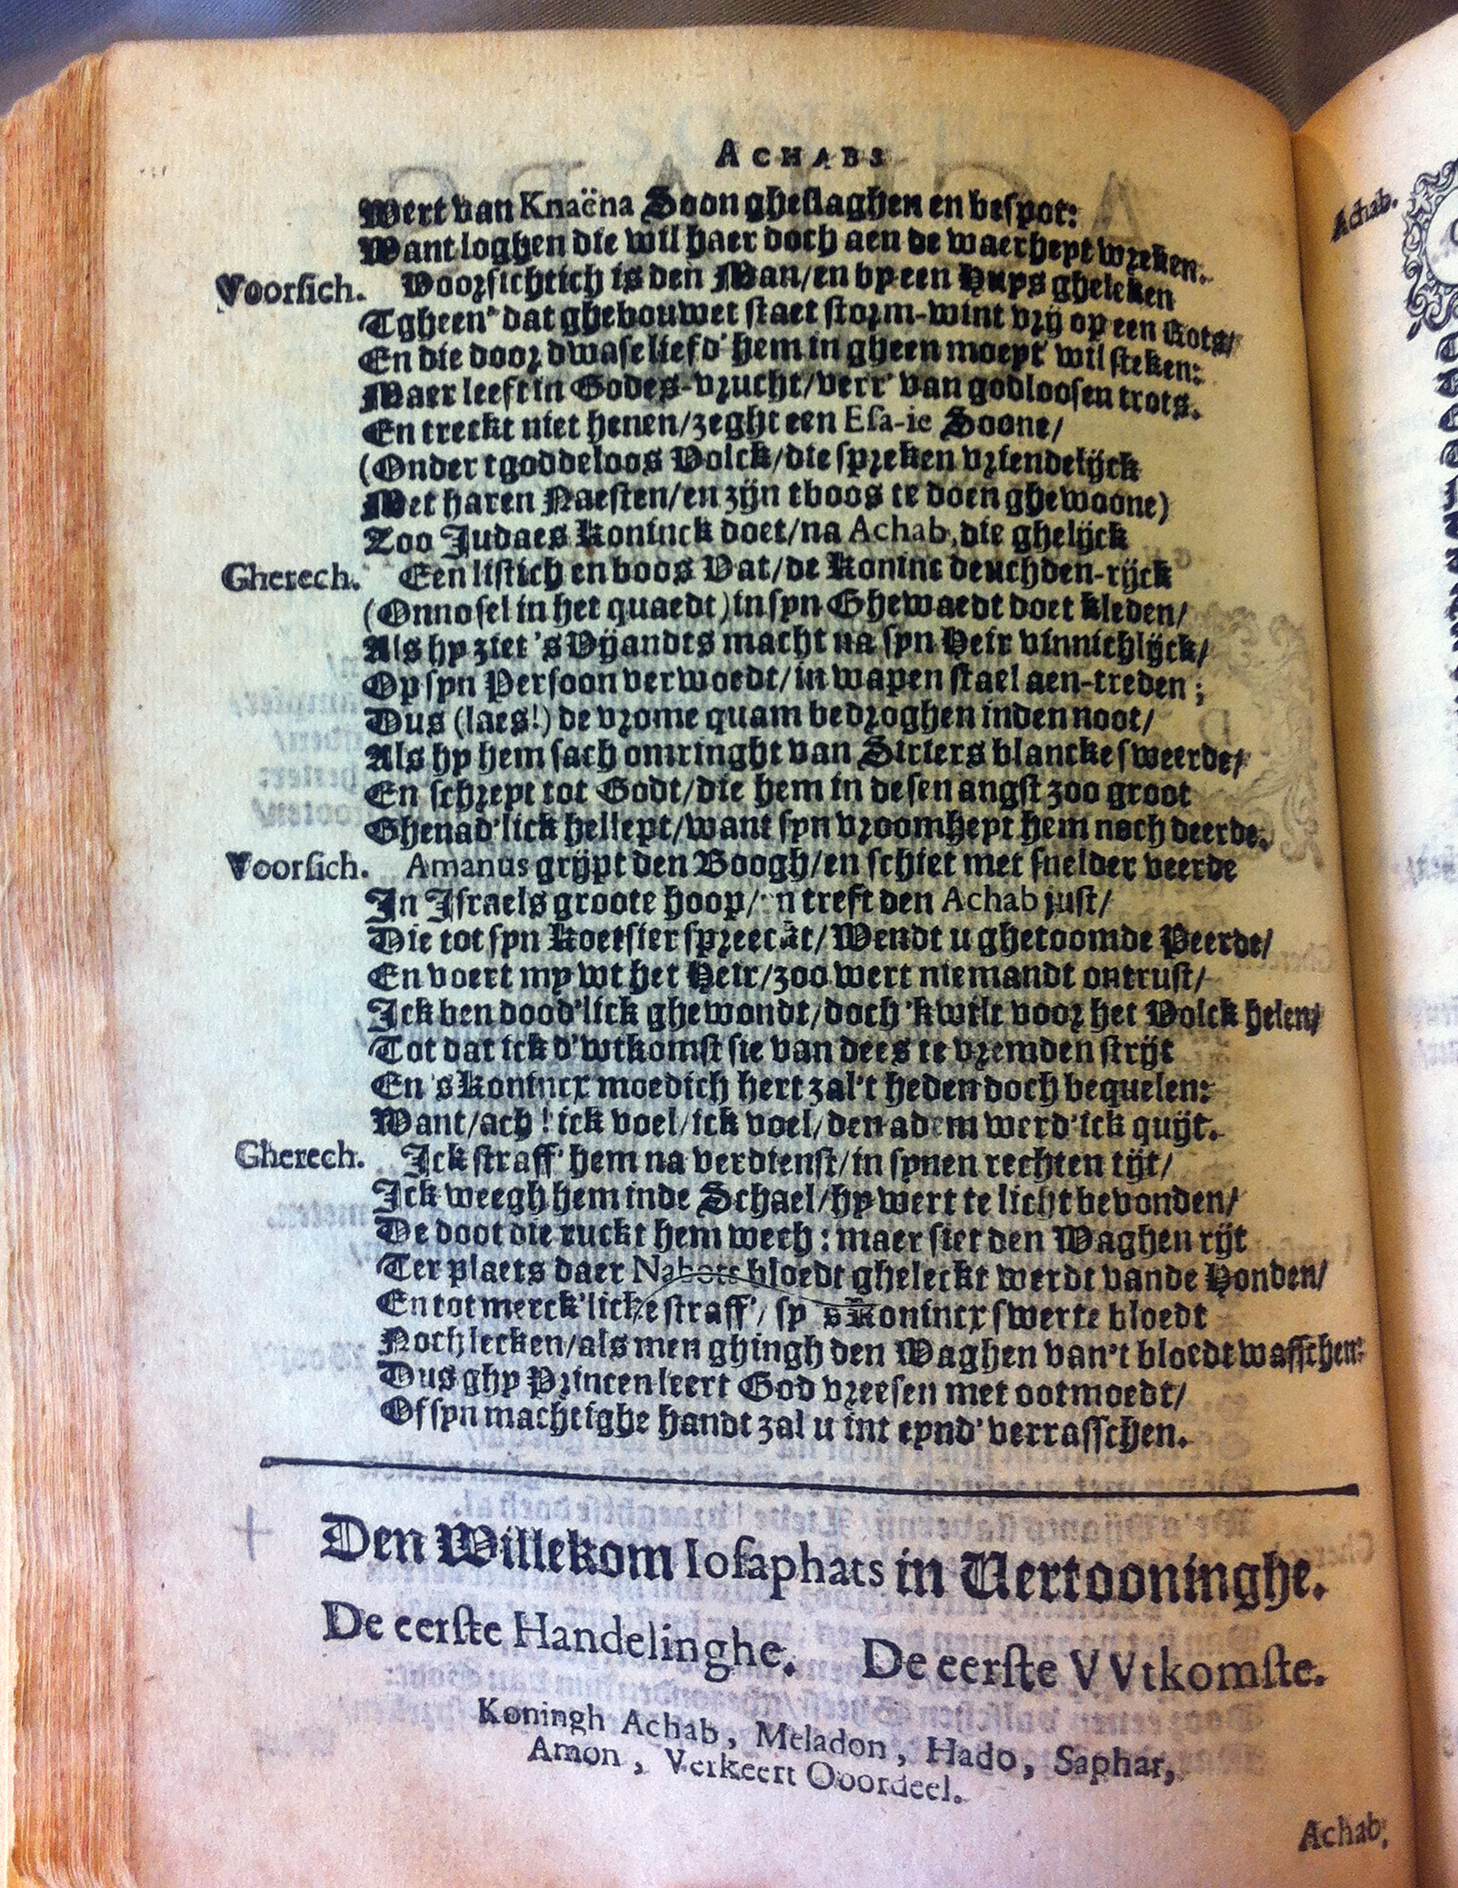 ACHABS
Wert van Knaëna Soon gheslaghen en bespot:
Want loghen die wil haer doch aen de waerheyt wreken.
Voorsich. Voorsichtich is den Man/en by een Huys gheleken
Tgheen' dat ghebouwet staet storm-wint vrij op een Rots/
En die door dwase liefd' hem in gheen moeyt' wil steken:
Maer leeft in Godes-vrucht/verr' van godloosen trots.
En treckt niet henen/zeght een Esa-ie Soone/
(Onder tgoddeloos Volck/die spreken vriendelijck
Met haren Naesten/en zijn tboos te doen ghewoone)
Zoo Judaes Koninck doet/na Achab, die ghelijck
Gherech. Een listich en boos Vat/de Koninc deuchden-rijck
(Onnosel in het quaedt) in syn Ghewaedt doet kleden/
Als hy ziet 's Vijandts macht na syn Heir vinnichlijck/
Op syn Persoon verwoedt/in wapen stael aen-treden;
Dus (laes!) de vrome quam bedroghen inden noot/
Als hy hem sach omringht van Siriers blancke sweerde/
En schreyt tot Godt/die hem in desen angst zoo groot
Ghenad'lick hellept/want syn vroomheyt hem noch deerde.
Voorsich. Amanus grijpt den Boogh/en schiet met snelder veerde
In Israels groote hoop/ n treft den Achab just/
Die tot syn Koetsier spreect/Wendt u ghetoomde Peerde/
En voert my wt het Heir/zoo wert niemandt ontrust/
Ick ben dood'lick ghewondt/doch 'k wilt voor het Volck helen/
Tot dat ick d'wtkomst sie van dees te vremden strijt
En 's Konincx moedich hert zal't heden doch bequelen:
Want/ach! ick voel/ick voel/den adem werd' ick quijt.
Gherech. Ick straff' hem na verdienst/in synen rechten tijt/
Ick weegh hem inde Schael/hy wert te licht bevonden/
De doot die ruckt hem wech: maer siet den Waghen rijt
Ter plaets daer Nabots bloedt gheleckt werdt vande Honden/
En tot merck'licke straff'/ sy 's Konincx swerte bloedt
Noch lecken/als men ghingh den Waghen van't bloedt wasschen:
Dus ghy Princen leert God vreesen met ootmoedt/
Of syn machtighe handt zal u int eynd' verrasschen.
Den Willekom Iosaphats in Vertooninghe.
De eerste Handelinghe. De eerste VVtkomste.
Koningh Achab, Meladon, Hado, Saphar,
Amon, Verkeert Ooordeel.
Achab,
Achab.